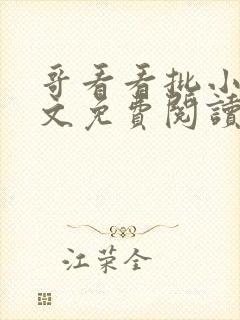 哥看看批小
文免費閱讀
江荣全